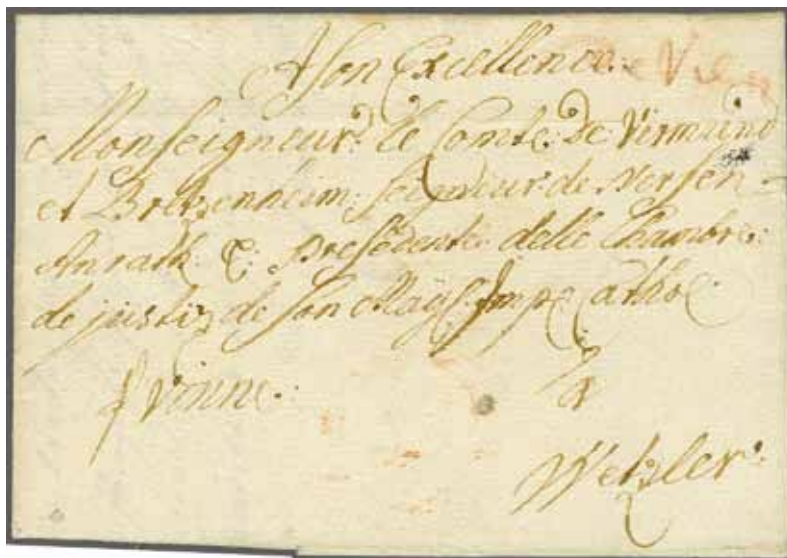 A Son Excellence. De Vien
Monseigneur le Comte de Virmund
et Bretzenheim, Seigneur de Nersen
Anrath &: Presidente delle Chambre
de justiz de Son Maÿ: Imp: Cathol
p Vienne. a
Wetzler